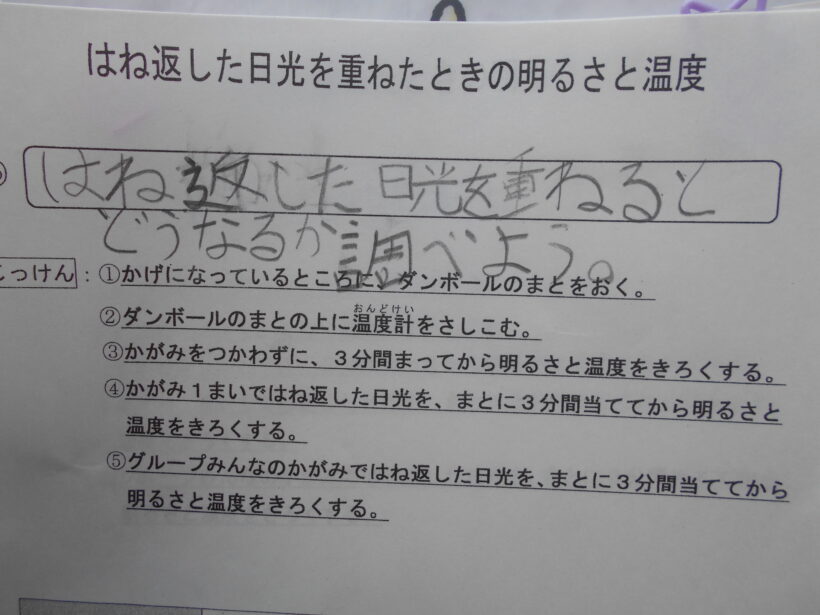 はね返した日光を重ねたときの明るさと温度
はね返した日光を重ねると
どうなるか調べよう。
じっけん：①かげになっているところに、ダンボールのまとをおく。
おんどけい
②ダンボールのまとの上に温度計をさしこむ。
③かがみをつかわずに、３分間まってから明るさと温度をきろくする。
④かがみ１まいではね返した日光を、まとに３分間当ててから明るさと
温度をきろくする。
⑤グループみんなのかがみではね返した日光を、まとに３分間当ててから
明るさと温度をきろくする。